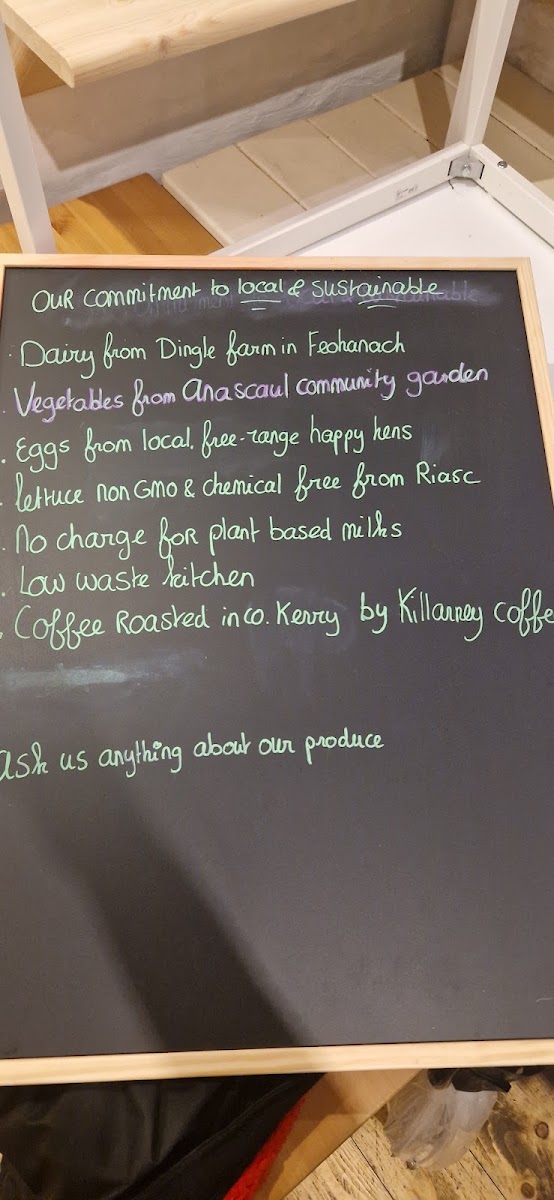 OUR commitment to local & sustainable
. Dairy from Dingle farm in Feohanach
. Vegetables from Anascaul community garden
. Eggs from local, free-range happy hens
. lettuce non GMO & chemical free from Riasc
. No charge for plant based milks
. Low waste kitchen
. Coffee Roasted in co. Kerry by Killarney coffe
ask us anything about our produce